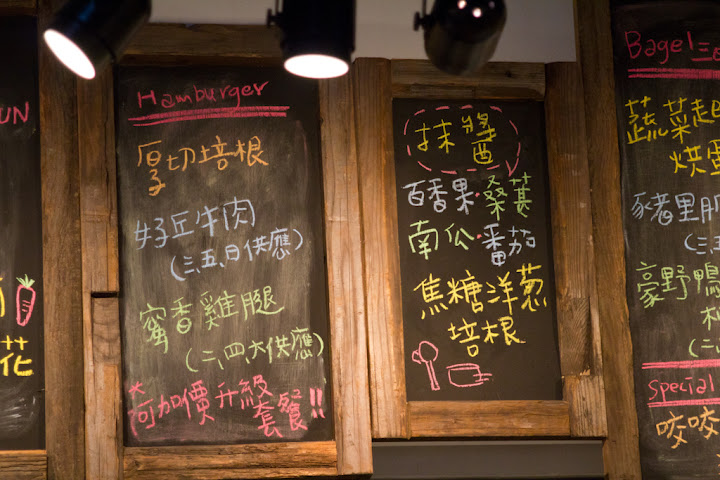 UN
花
Hamburger
厚切培根
好丘牛肉
(三.五.日供應)
蜜香雞腿
(二.四.六供應)
*可加價升級
套餐!!
抹醬
百香果·桑葚
南瓜·番茄
焦糖洋蔥
培根
Bagel 三
蔬菜起
烘蛋
豬里肌
(三
豪野鴨
(二
special
咬咬